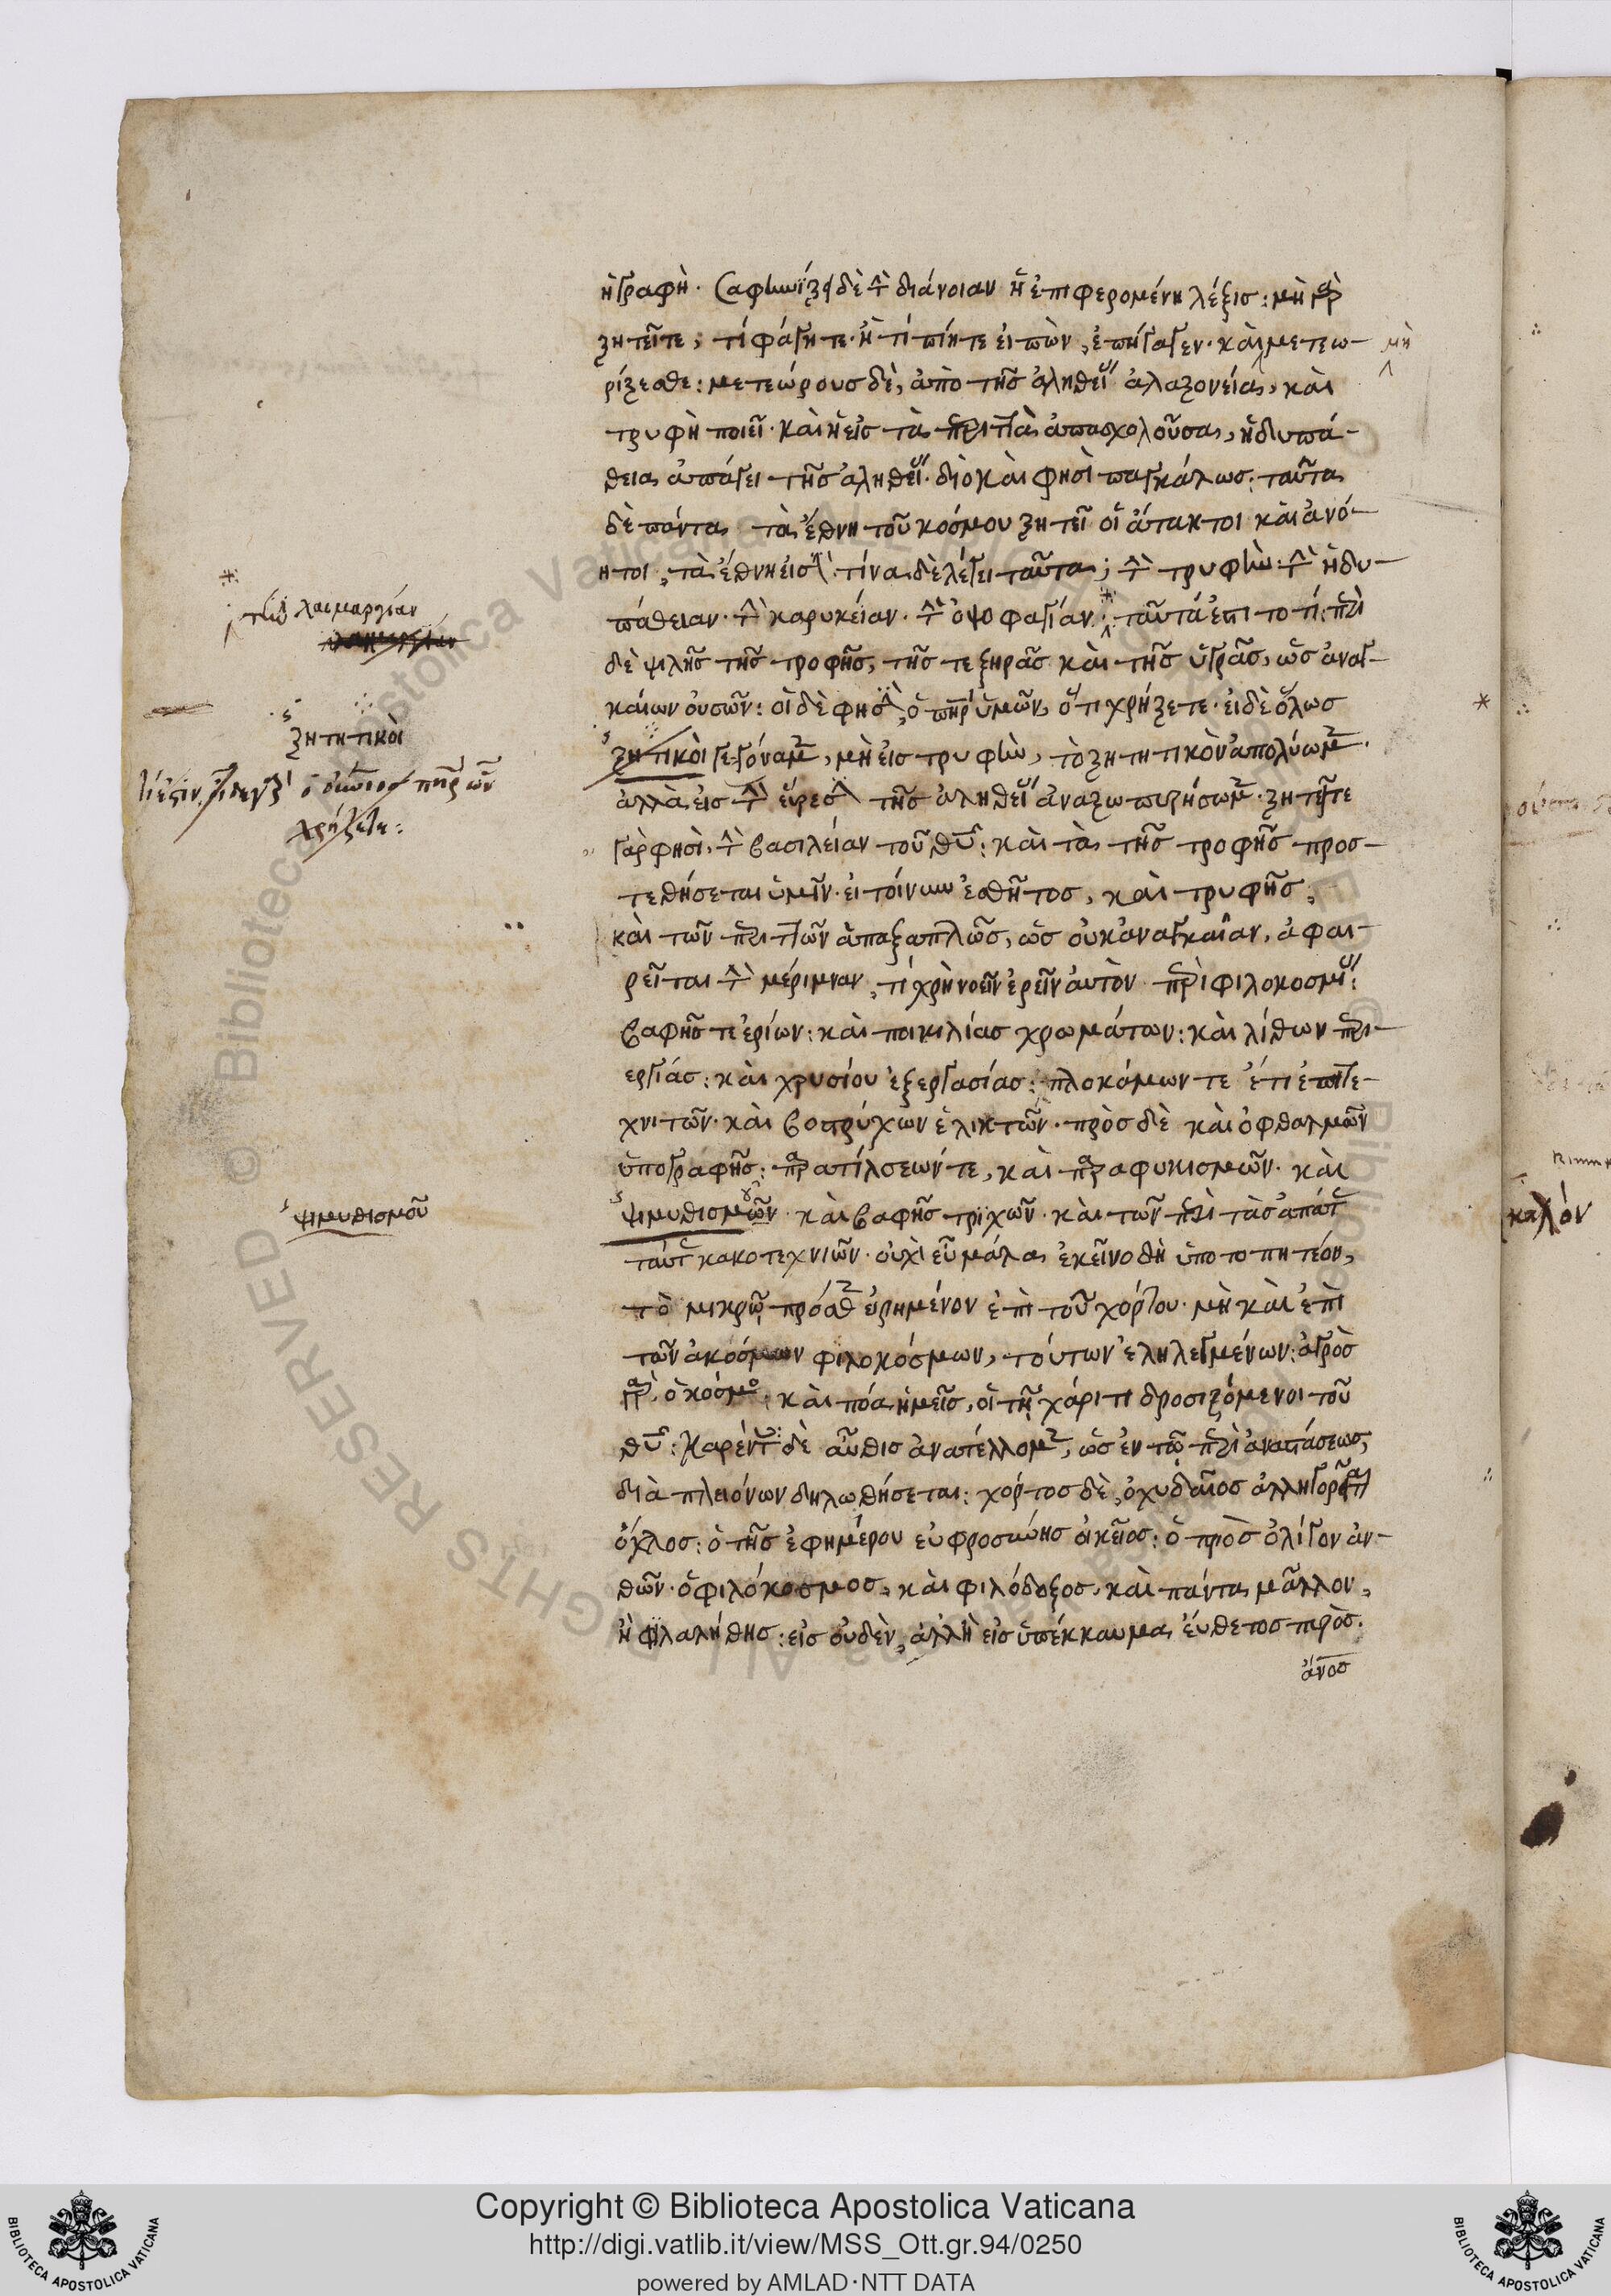 ἡ γραφή. σαφηνίζει δὲ τὴν διάνοιαν ἡ ἐπιφερομένη λέξις: μὴ γὰρ
ζητεῖτε, τί φάγητε. ἢ τί πίητε εἰπὼν, ἐπήγαγεν. καὶ μετεω- μὴ
ρίζεσθε: μετεώρους δὲ, ἀπὸ τῆς ἀληθείας ἀλαζονεία, καὶ
τρυφὴ ποιεῖ. καὶ ἡ εἰς τὰ περιττὰ ἀπασχολοῦσα, ἡδυπά-
θεια ἀπάγει τῆς ἀληθείας. διὸ καὶ φησὶ παγκάλως: ταῦτα
δὲ πάντα τὰ ἔθνη τοῦ κόσμου ζητεῖ οἱ ἄτακτοι καὶ ἀνό-
ητοι, τὰ ἔθνη εἰσὶ. τίνα δὲ λέγει ταῦτα; τὴν τρυφὴν. τὴν ἡδυ-
πάθειαν. τὴν καρυκείαν. τὴν ὀψοφαγίαν. ταῦτά ἐστι τὸ τί: περὶ
τὴν λαιμαργίαν
δὲ ψιλῆς τῆς τροφῆς, τῆς τε ξηρᾶς καὶ τῆς ὑγρᾶς, ὡς ἀναγ-
καίων οὐσῶν: οἶδε φησὶν, ὁ πηρ ὑμῶν, ὅτι χρῄζετε. εἰ δὲ ὅλως
ζητητικοὶ
ζητικοὶ γεγόναμεν, μὴ εἰς τρυφὴν, τὸ ζητητικὸν ἀπολύωμεν.
ἀλλὰ εἰς τὴν εὕρεσιν τῆς ἀληθείας ἀναζωπυρήσωμεν. ζητεῖτε
χρῄζετε:
γὰρ φησὶ, τὴν βασιλείαν τοῦ θυ: καὶ τὰ τῆς τροφῆς προσ-
τεθήσεται ὑμῖν. εἰ τοίνυν ἐσθῆτος, καὶ τρυφῆς,
καὶ τῶν περιττῶν ἁπαξαπλῶς, ὡς οὐκ ἀναγκαῖαν, ἀφαι-
ρεῖται τὴν μέριμναν, τί χρὴ νοεῖν ἐρεῖν αὐτὸν περὶ φιλοκοσμίας:
βαφῆς τε ἐρίων: καὶ ποικιλίας χρωμάτων: καὶ λίθων περι-
εργίας: καὶ χρυσίου ἐξεργασίας: πλοκάμων τε ἔτι ἐπιτε-
χνιτῶν. καὶ βοστρύχων ἑλικτῶν. πρὸς δὲ καὶ ὀφθαλμῶν
ὑπογραφῆς: παρατίλσεών τε, καὶ παραφυκισμῶν. καὶ
ψιμυθισμοῦ
ψιμυθισμῶν. καὶ βαφῆς τριχῶν. καὶ τῶν περὶ τὰς ἀπάτας
ταύτας κακοτεχνιῶν. οὐχὶ εὖ μάλα ἐκεῖνο δὴ ὑποτοπητέον,
τὸ μικρῷ πρόσθεν εἰρημένον ἐπὶ τοῦ χόρτου. μὴ καὶ ἐπὶ
τῶν ἀκόσμων φιλοκόσμων, τούτων ἐληλεγμένων: ἀγρὸς
γὰρ, ὁ κόσμος: καὶ πόα ἡμεῖς, οἱ τῇ χάριτι δροσιζόμενοι τοῦ
θυ: καρέντες δὲ αὖθις ἀνατέλλομεν, ὡς ἐν τῷ περὶ ἀναστάσεως,
διὰ πλειόνων δηλωθήσεται: χόρτος δὲ, ὁ χυδαῖος ἀλληγορεῖται
ὄχλος: ὁ τῆς ἐφημέρου εὐφροσύνης οἰκεῖος: ὁ πρὸς ὀλίγον ἀν-
θῶν. ὁ φιλόκοσμος, καὶ φιλόδοξος, καὶ πάντα μᾶλλον,
ἢ φιλαλήθης: εἰς οὐδὲν, ἀλλ' ἢ εἰς ὑπέκκαυμα εὔθετος πυρός.
ἄνος
καλόν
Copyright © Biblioteca Apostolica Vaticana
http://digi.vatlib.it/view/MSS_Ott.gr.94/0250
powered by AMLAD·NTT DATA
BIBLIOTECA APOSTOLICA VATICANA
BIBLIOTECA APOSTOLICA VATICANA